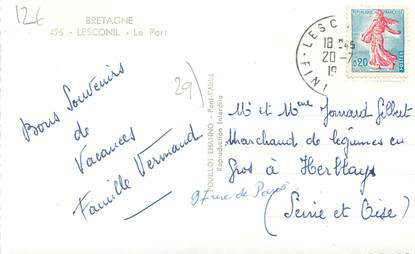 12€
BRETAGNE
- LESCONIL - Le Port
29)
LESC
18 H 45
20 - 7
19
FINI
REPUBLIQUE FRANÇAISE
0,20
POSTES
Bons Souvenirs
de
Vacances
Famille Vermand
Pont-l'Abbé
Reproduction Interdite
Mr et Mme Jomard Gilbert
Marchand de légumes en
Gros à Herblays
9 rue de Paris
(Seine et Oise)